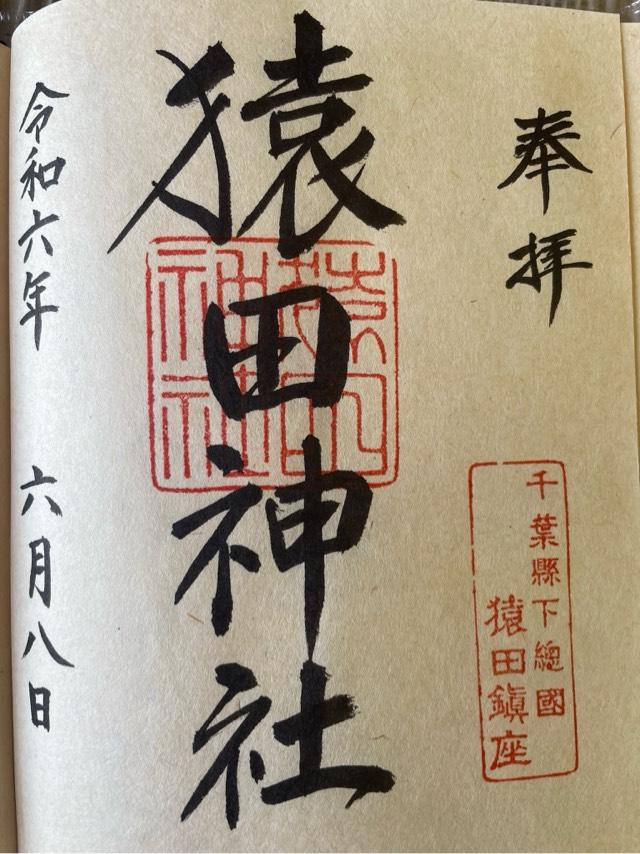 奉拝
千葉縣下總國
猿田鎭座
猿田神社
猿田神社
令和六年 六月八日